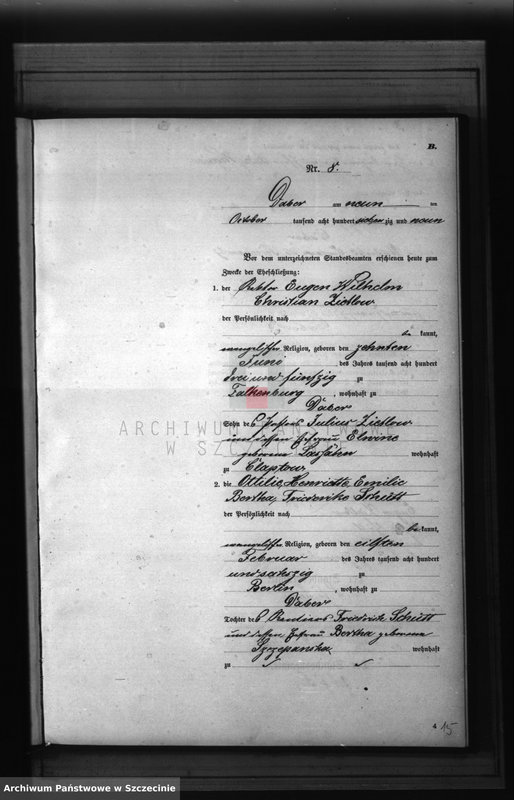 B.
Nr. 8.
Daber am neun ten
October tausend acht hundert siebenzig und neun
Vor dem unterzeichneten Standesbeamten erschienen heute zum
Zwecke der Eheschließung:
1. der Rektor Eugen Wilhelm
Christian Zietlow
der Persönlichkeit nach
be kannt,
evangelischer Religion, geboren den zehnten
Juni des Jahres tausend acht hundert
drei und fünfzig zu
Falkenburg, wohnhaft zu
Daber
Sohn des Julius Zietlow
und dessen Ehefrau Elwine
geborene wohnhaft
zu
2. die Ottilie Henriette Emilie
Bertha Friederike Schütt
der Persönlichkeit nach
be kannt,
evangelischer Religion, geboren den eilften
Februar des Jahres tausend acht hundert
und sechszig zu
Berlin, wohnhaft zu
Daber
Tochter des Friedrich Schütt
und dessen Ehefrau Bertha geborene
Szczepanska wohnhaft
zu
4
15
ARCHIWUM PAŃSTWOWE
W SZCZECINIE
Archiwum Państwowe w Szczecinie